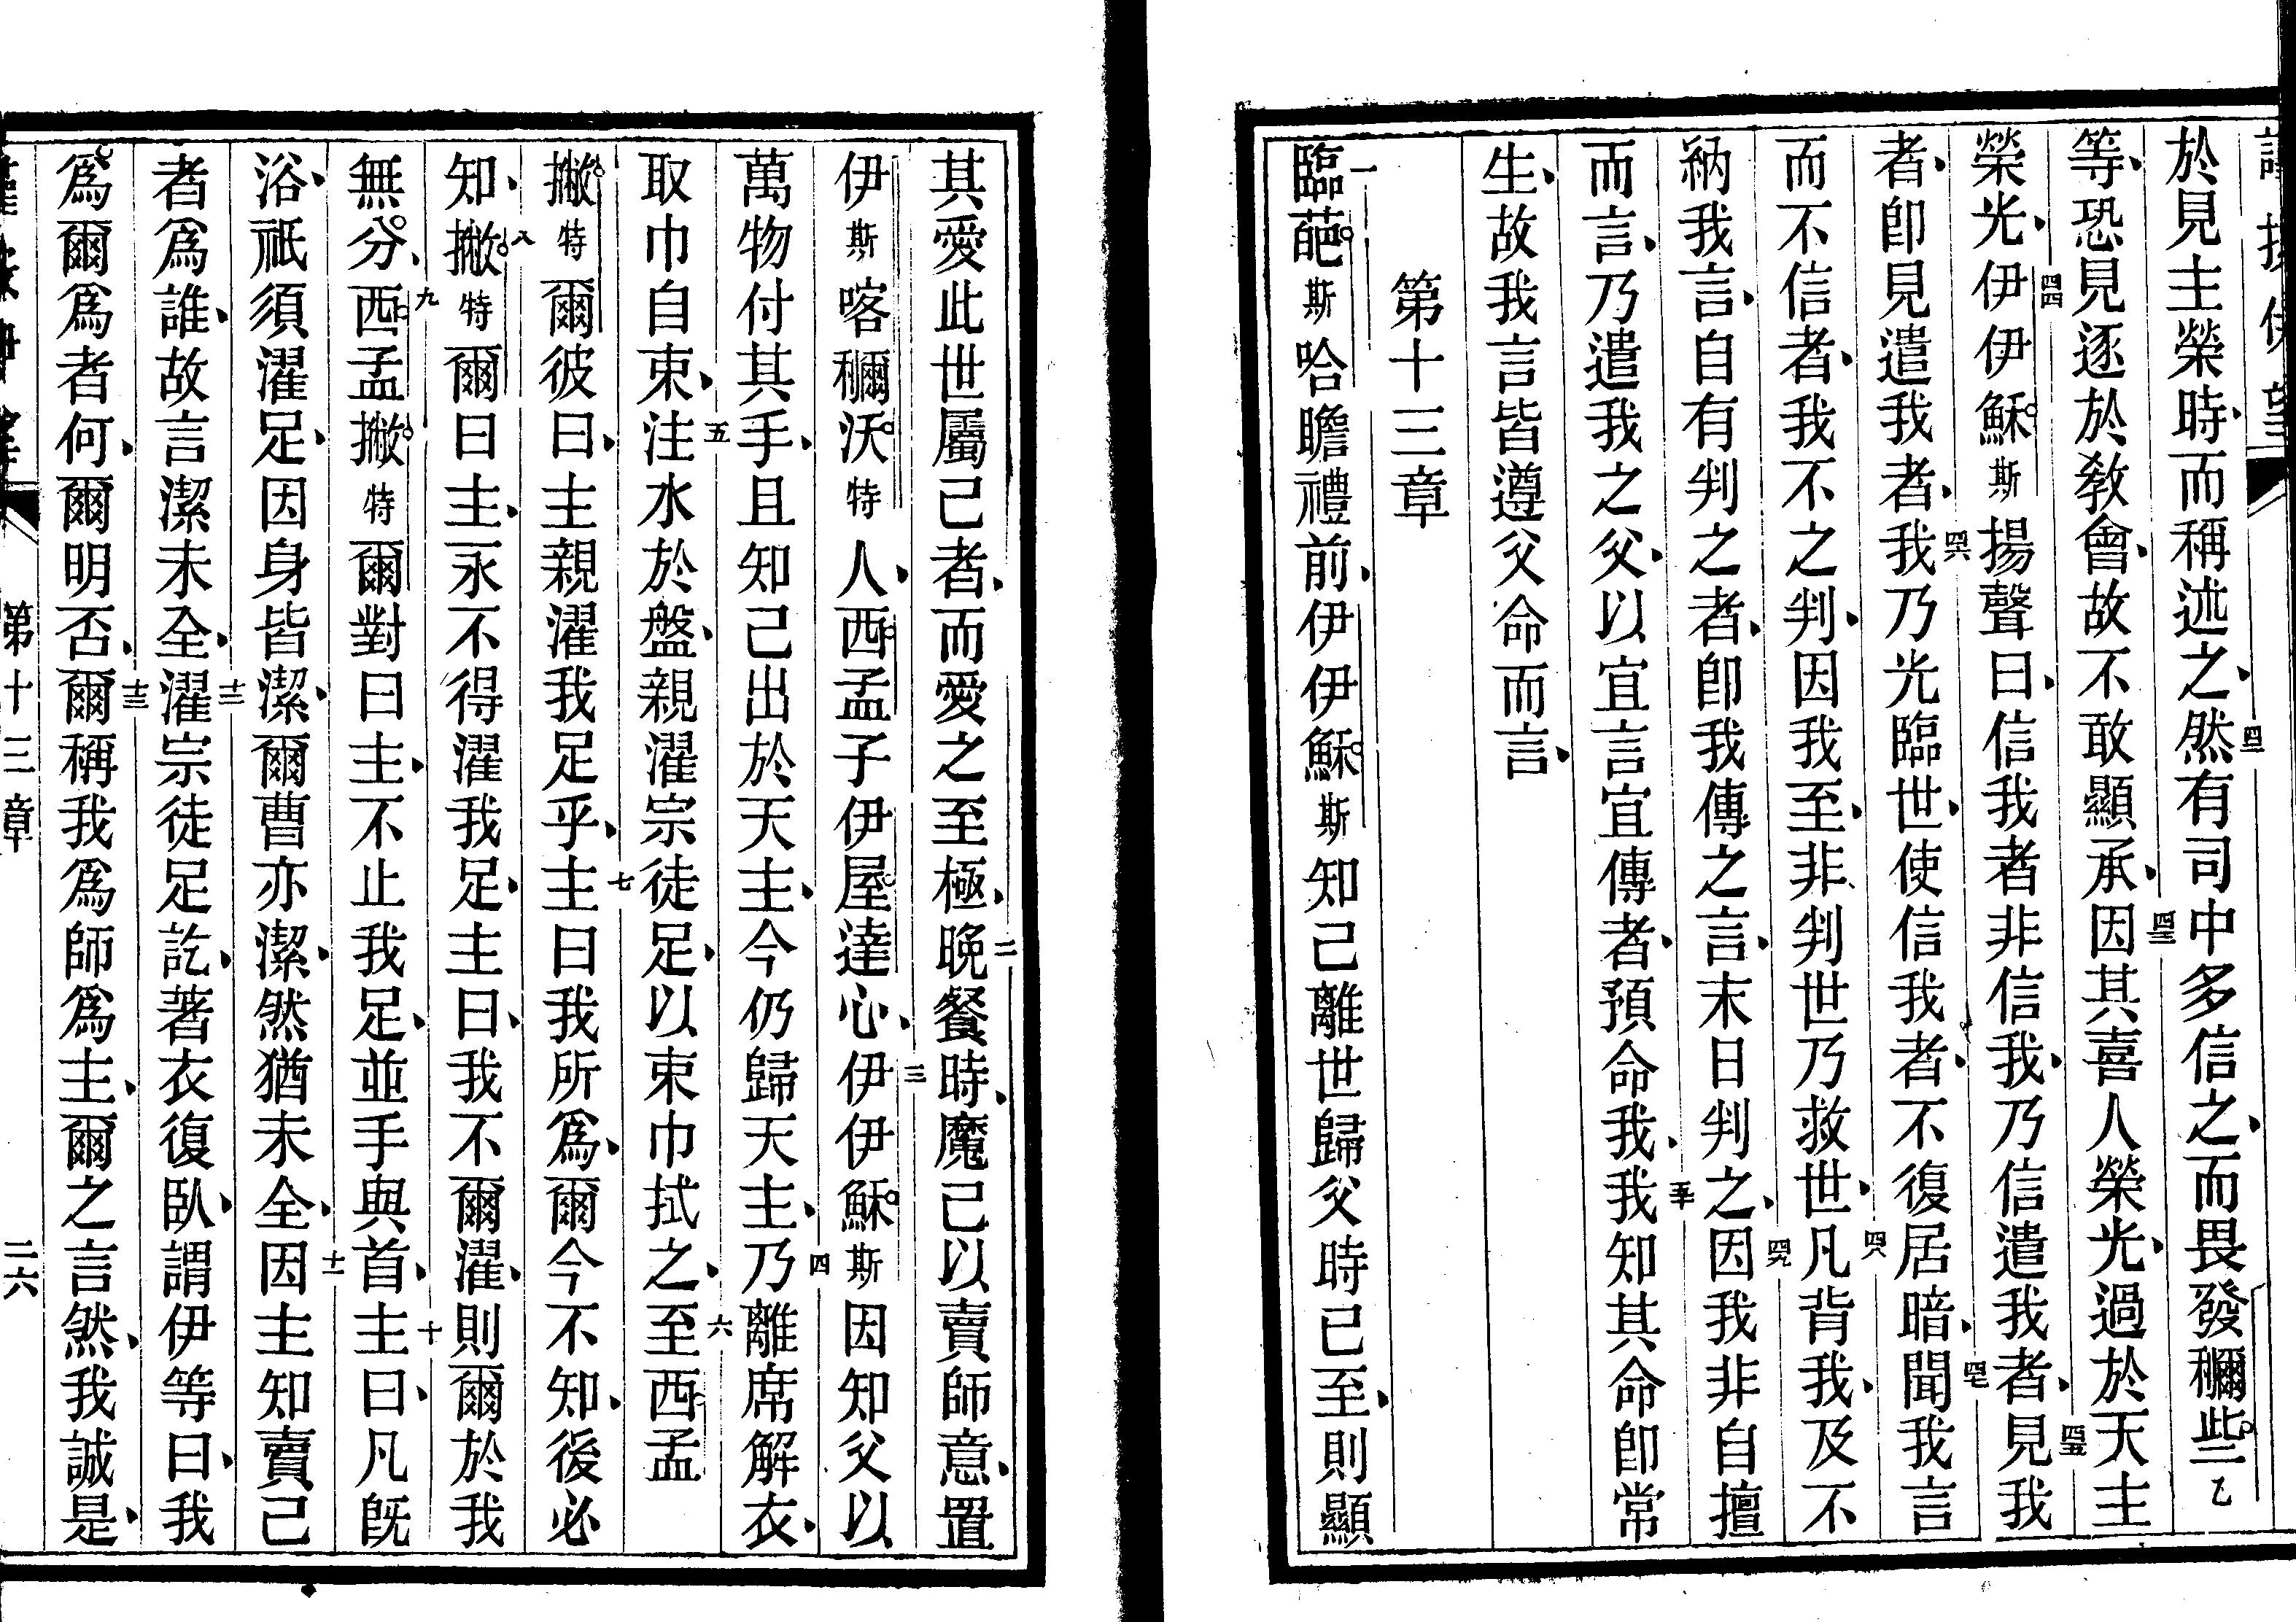 於見主榮時、而稱述之、四二然有司中多信之、而畏發穪些乙
等、恐見逐於教會、故不敢顯承、四三因其喜人榮光、過於天主
榮光、四四伊伊穌斯揚聲曰、信我者非信我、乃信遣我者、四五見我
者、卽見遣我者、四六我乃光臨世、使信我者、不復居暗、四七聞我言
而不信者、我不之判、因我至、非判世、乃救世、四八凡背我、及不
納我言、自有判之者、卽我傳之言、末日判之、四九因我非自擅
而言、乃遣我之父、以宜言宜傳者、預命我、五十我知其命卽常
生、故我言皆遵父命而言、
第十三章
一臨葩斯哈瞻禮前、伊伊穌斯知己離世歸父時已至、則顯
其愛此世屬己者、而愛之至極、二晩餐時、魔已以賣師意、置
伊斯喀穪沃特人、西孟子伊屋達心、三伊伊穌斯因知父以
萬物付其手、且知己出於天主、今仍歸天主、四乃離席解衣、
取巾自束、五注水於盤、親濯宗徒足、以束巾拭之、六至西孟
撇特爾彼曰、主親濯我足乎、七主曰我所爲、爾今不知、後必
知、八撇特爾曰主、永不得濯我足、主曰、我不爾濯、則爾於我
無分、九西孟撇特爾對曰主、不止我足、並手與首、十主曰、凡旣
浴、祇須濯足、因身皆潔、爾曹亦潔、然猶未全、十一因主知賣己
者爲誰、故言潔未全、十二濯宗徒足訖、著衣復臥、謂伊等曰、我
爲爾爲者何、爾明否、十三爾稱我爲師爲主、爾之言然、我誠是、
第十三章
二六